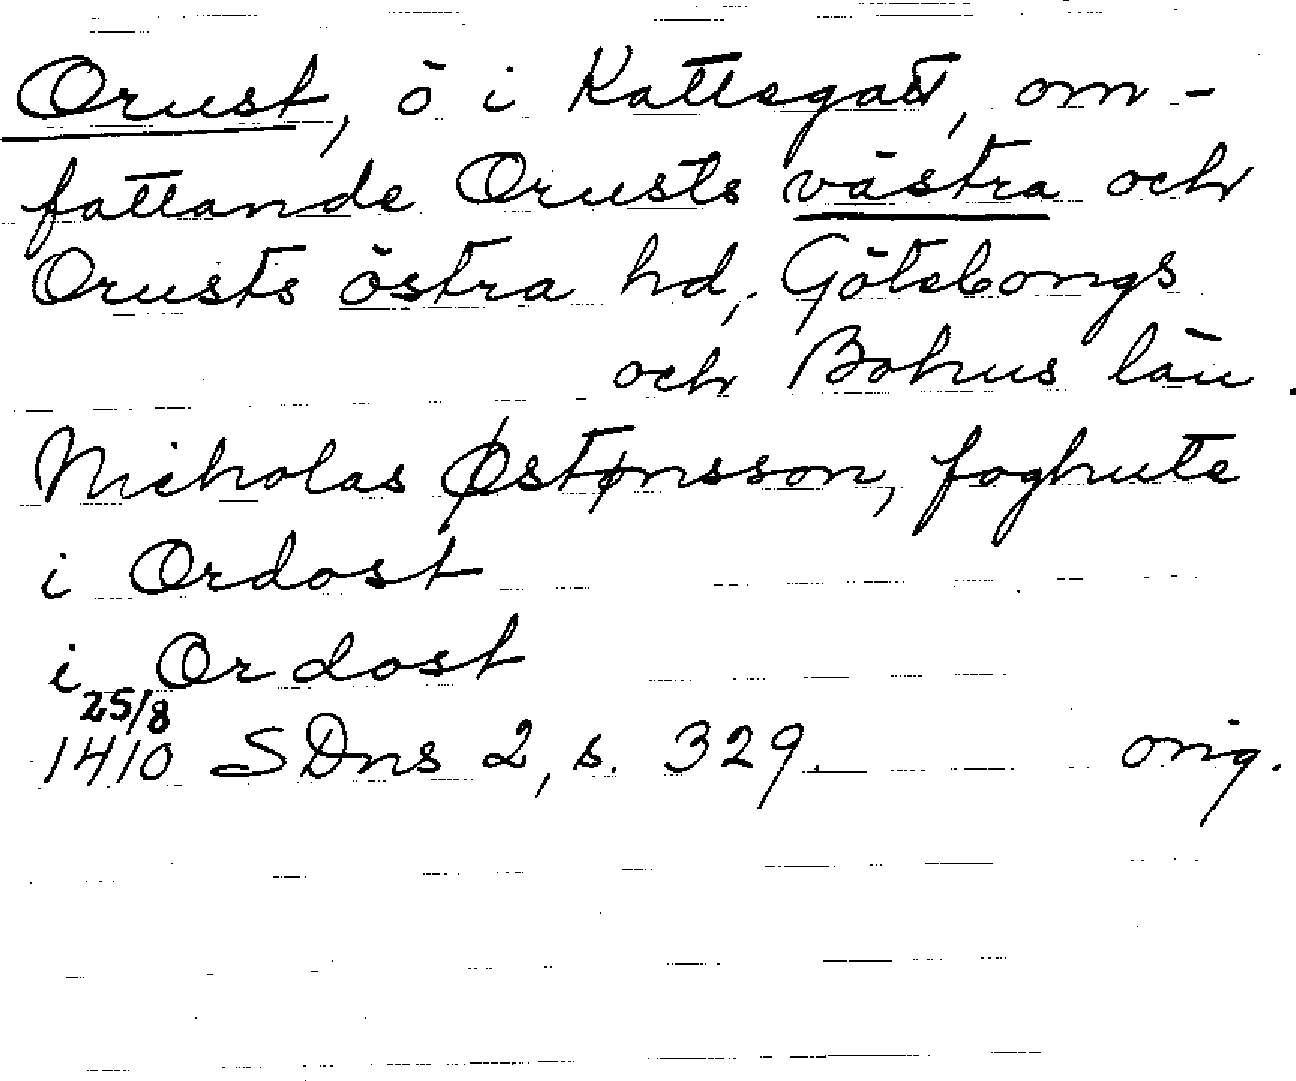 Orust, ö i Kattegatt, om-
fattande Orusts västra och
Orusts östra hd, Göteborgs
och Bohus län.
Nicholas Østønsson, foghute
i Ordost
i Ordost
25/8
1410 SDns 2, s. 329. orig.